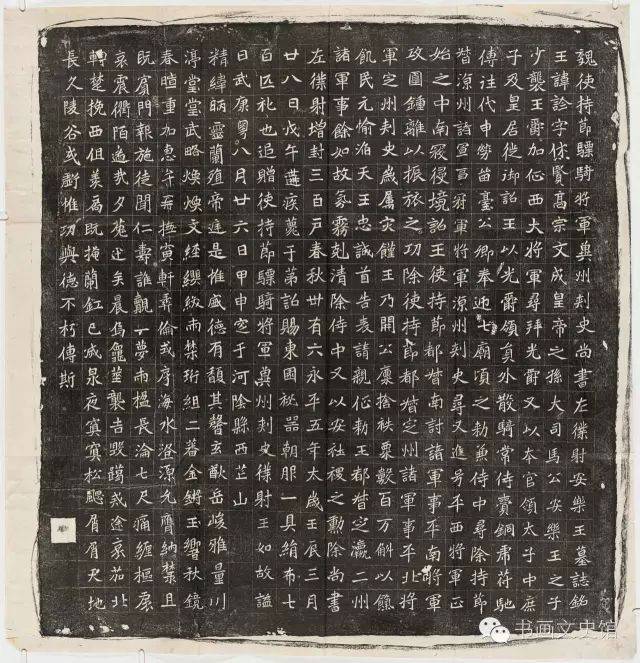 魏使持節驃騎將軍冀州刺史尚書左僕射安樂王墓誌銘
王諱詮字休賢高宗文成皇帝之孫大司馬公安樂王之子
少襲王爵加征西大將軍尋拜光爵又以本官領太子中庶
子及皇居徙御詔王以光爵領員外散騎常侍賫銅虎苻馳
傳往代申勞留臺公卿奉迎七廟頃之勅兼侍中尋除持節
督涼州諸軍事冠軍將軍涼州刺史尋又進号平西將軍正
始之中南寇侵境詔王使持節都督南討諸軍事平南將軍
攻圍鍾離以振旅之功除使持節都督定州諸軍事平北將
軍定州刺史歲属灾饉王乃開公廩捨秩粟數百万斛以餼
飢民元愉滔天王忠誠首告表請親征勅王都督定瀛二州
諸軍事餘如故氛霧剋清除侍中又以安社稷之勲除尚書
左僕射增封三百户春秋卅有六永平五年太歲壬辰三月
廿八日戊午遘疾薨于第詔賜東園祕器朝服一具絹布七
百匹礼也追贈使持節驃騎將軍冀州刺史僕射王如故謚
曰武康粤八月廿六日甲申窆于河陰縣西芒山
精緯昞靈蘭殖帝庭是惟盛德有馥其馨玄猷岳峻雅量川
渟堂堂武略煥煥文經纓紱兩禁珩組二蕃金鏘玉響秋鏡
春暄重加惠弁再撫寅軒彞倫或序海水洛源允膺納禁且
既賓門報施徒聞仁壽誰覯一夢兩楹長淪七尺痛纏樞扆
哀震衢陌遄哉夕菟迅矣晨烏龜筮襲吉毀躅戒途哀茄北
轉楚挽西徂羨扃既掩蘭釭已滅泉夜寞寞松颸屑屑天地
長久陵谷或虧惟功與德不朽傳斯
书画文史馆